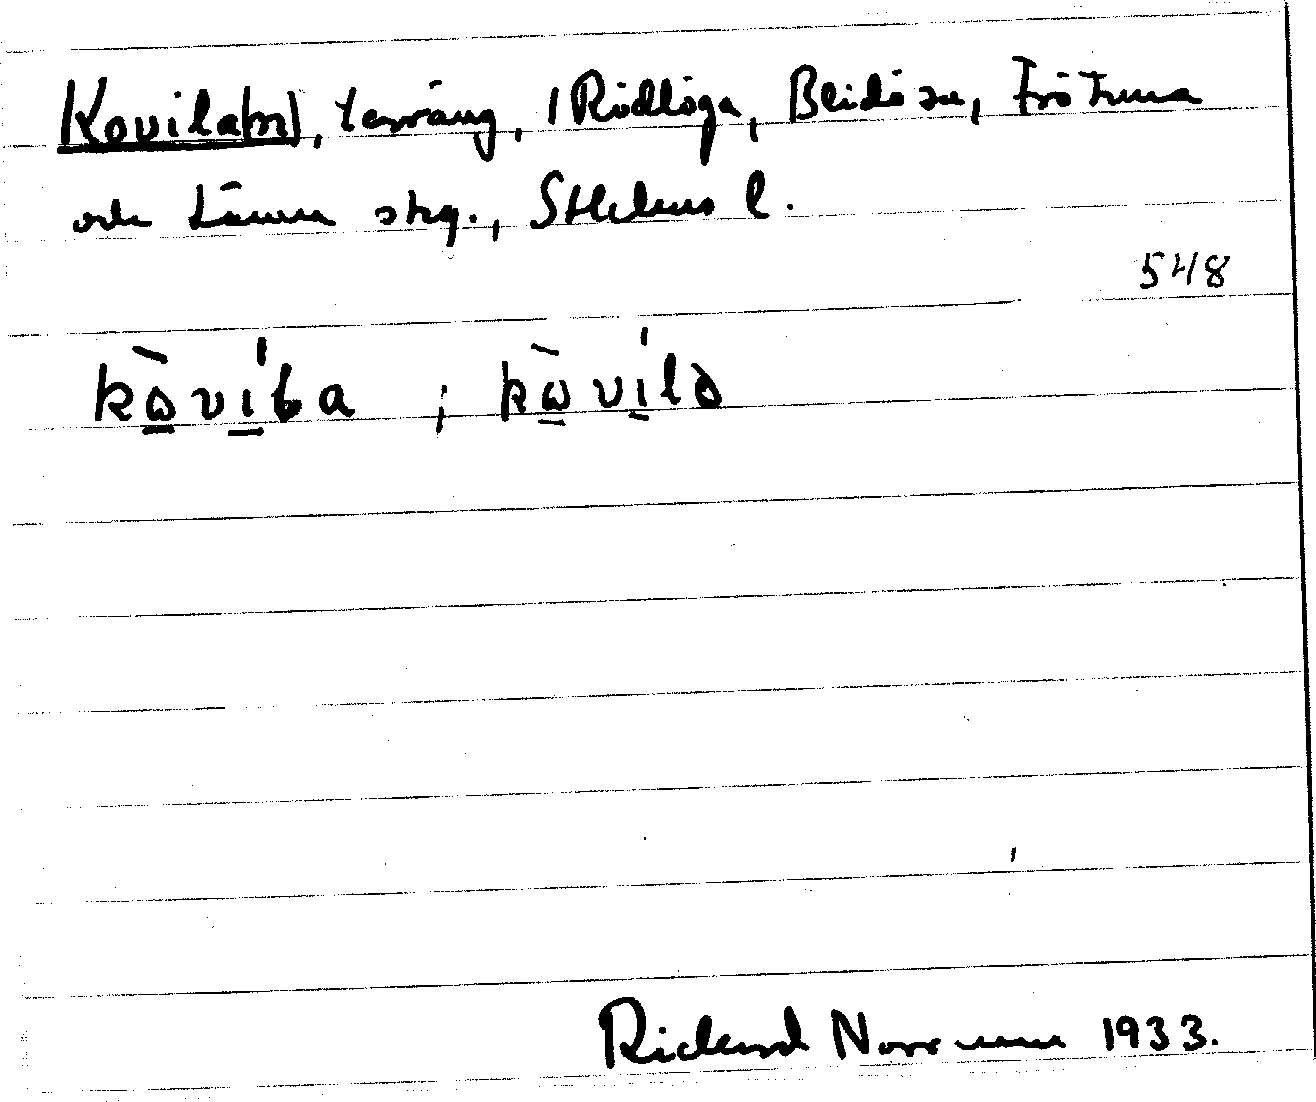 Kovila(n), terräng, i Rödlöga, Blidö sn, Frötuna
och Länna skg., Sthlms l.
548
kɷ̀vìƚa ; kɷ̀vílə
Rickard Norrman 1933.